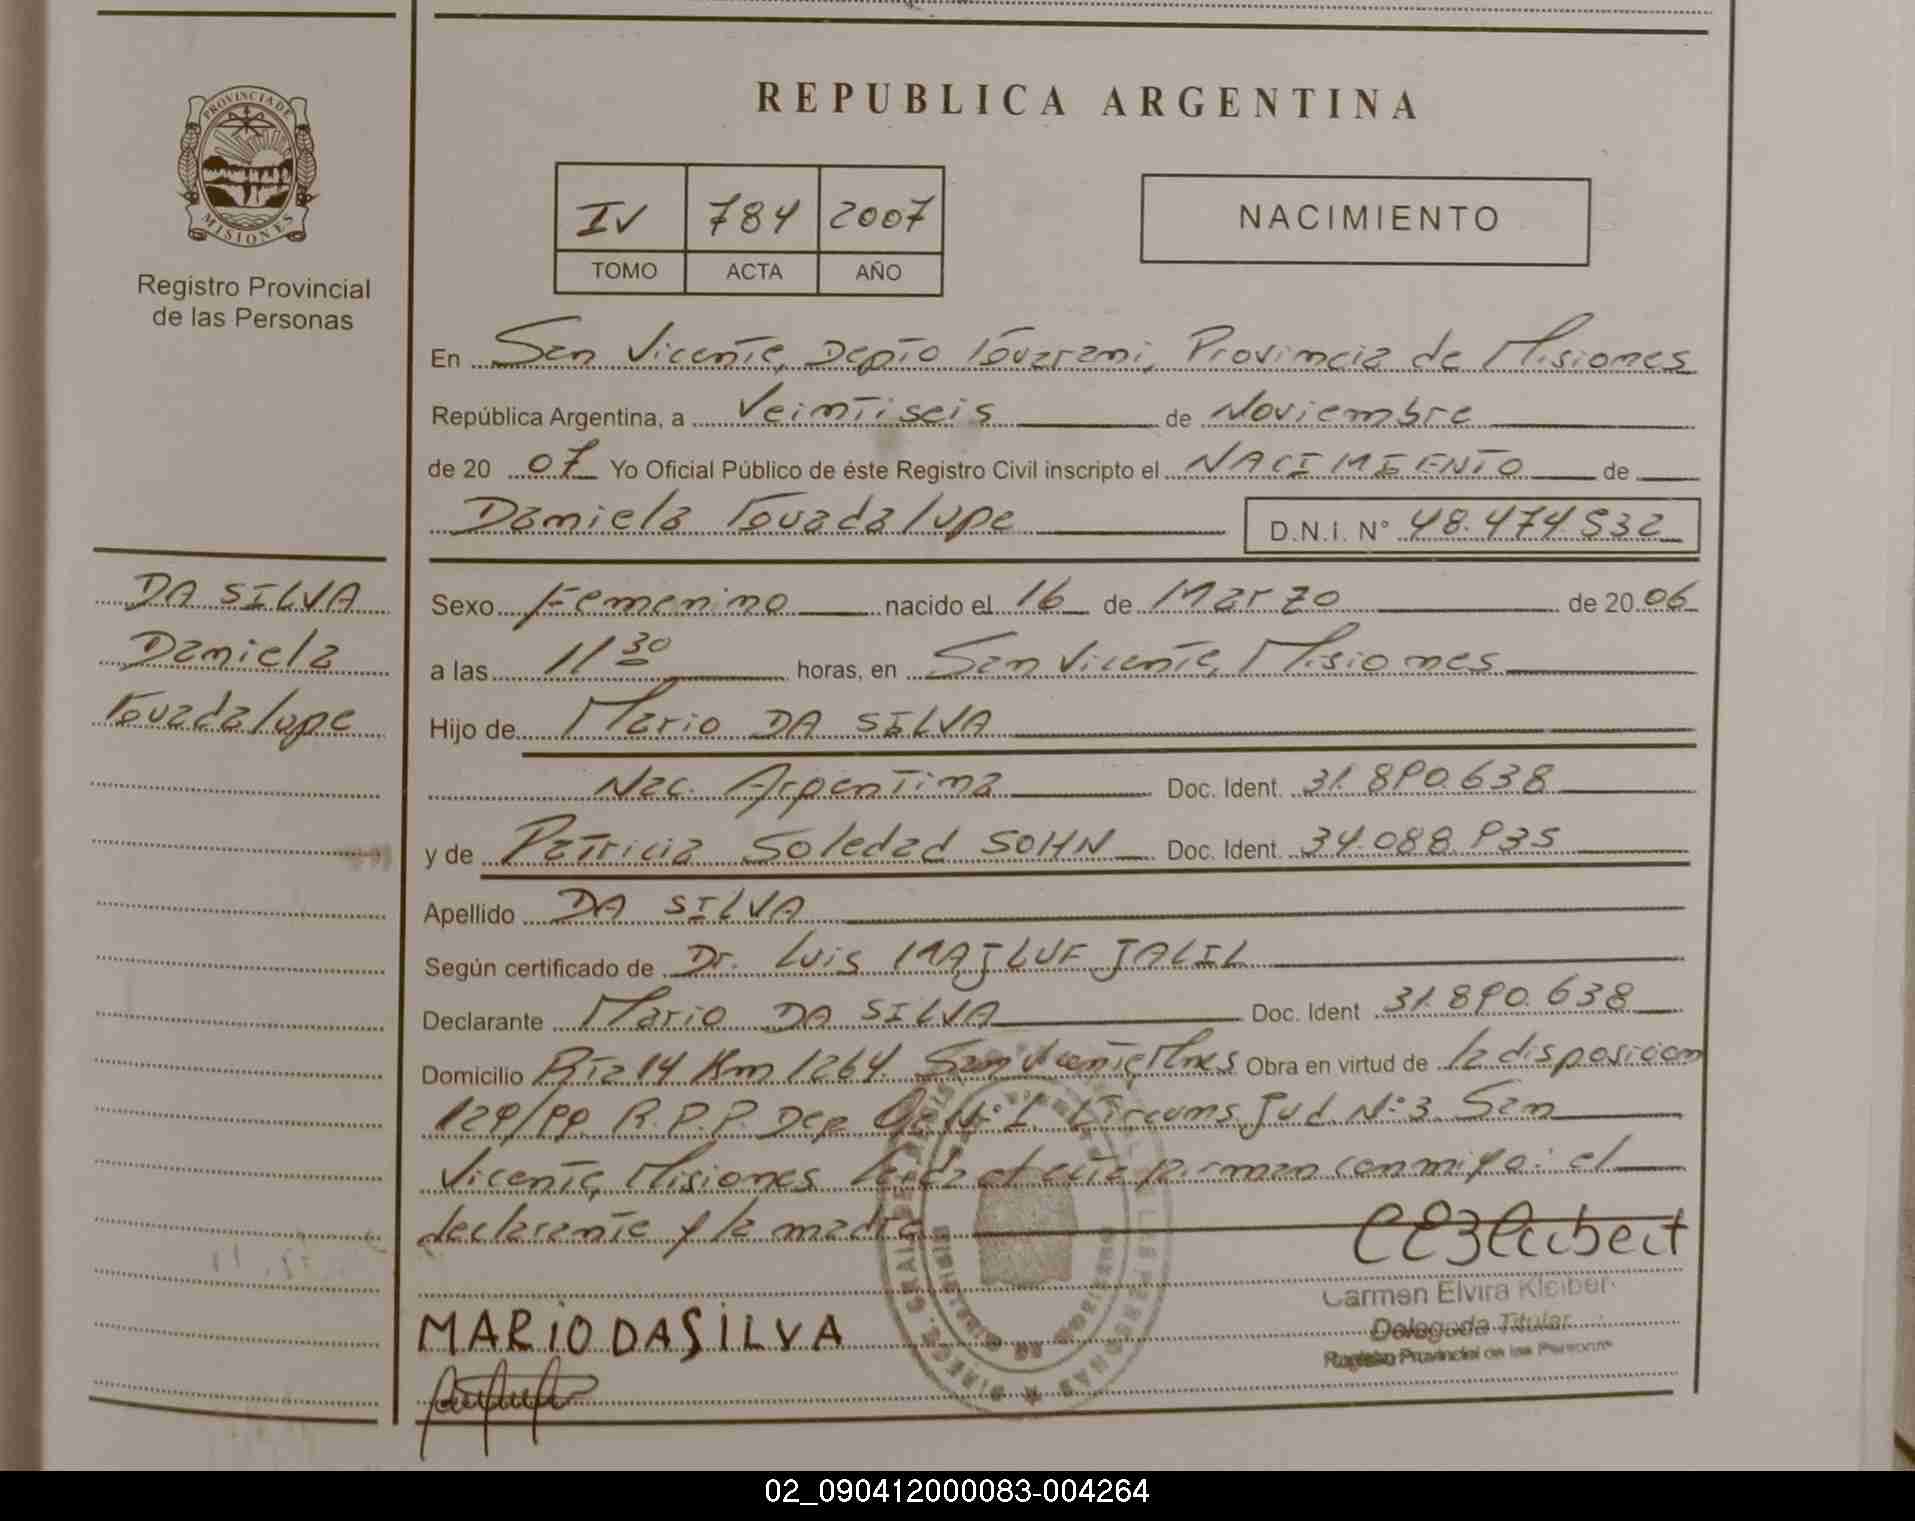 REPUBLICA ARGENTINA
PROVINCIA DE
MISIONES
Registro Provincial
de las Personas
IV 784 2007
TOMO ACTA AÑO
NACIMIENTO
En San Vicente, Depto Guarani, Provincia de Misiones
República Argentina, a Veintiseis de Noviembre
de 20 07 Yo Oficial Público de éste Registro Civil inscripto el NACIMIENTO de
Daniela Guadalupe D.N.I. N° 48.474.532
DA SILVA
Daniela
Guadalupe
Sexo Femenino nacido el 16 de Marzo de 20 06
a las 11 30 horas, en San Vicente, Misiones
Hijo de Mario DA SILVA
Nac. Argentina Doc. Ident. 31.890.638
y de Patricia Soledad SOHN Doc. Ident. 34.088.935
Apellido DA SILVA
Según certificado de Dr. Luis MAJLUF JALIL
Declarante Mario DA SILVA Doc. Ident 31.890.638
Domicilio Rta 14 Km 1264. San Vicente, Mnes Obra en virtud de la disposicion
129/99. R.P.P. Dep N°1. Circuns. Jud. N°3. San
Vicente, Misiones Leida el acta firman conmigo: el
declarante y la madre
Carmen Elvira Kleiber
Delegada Titular
Registro Provincial de las Personas
MARIO DA SILVA
02_090412000083-004264